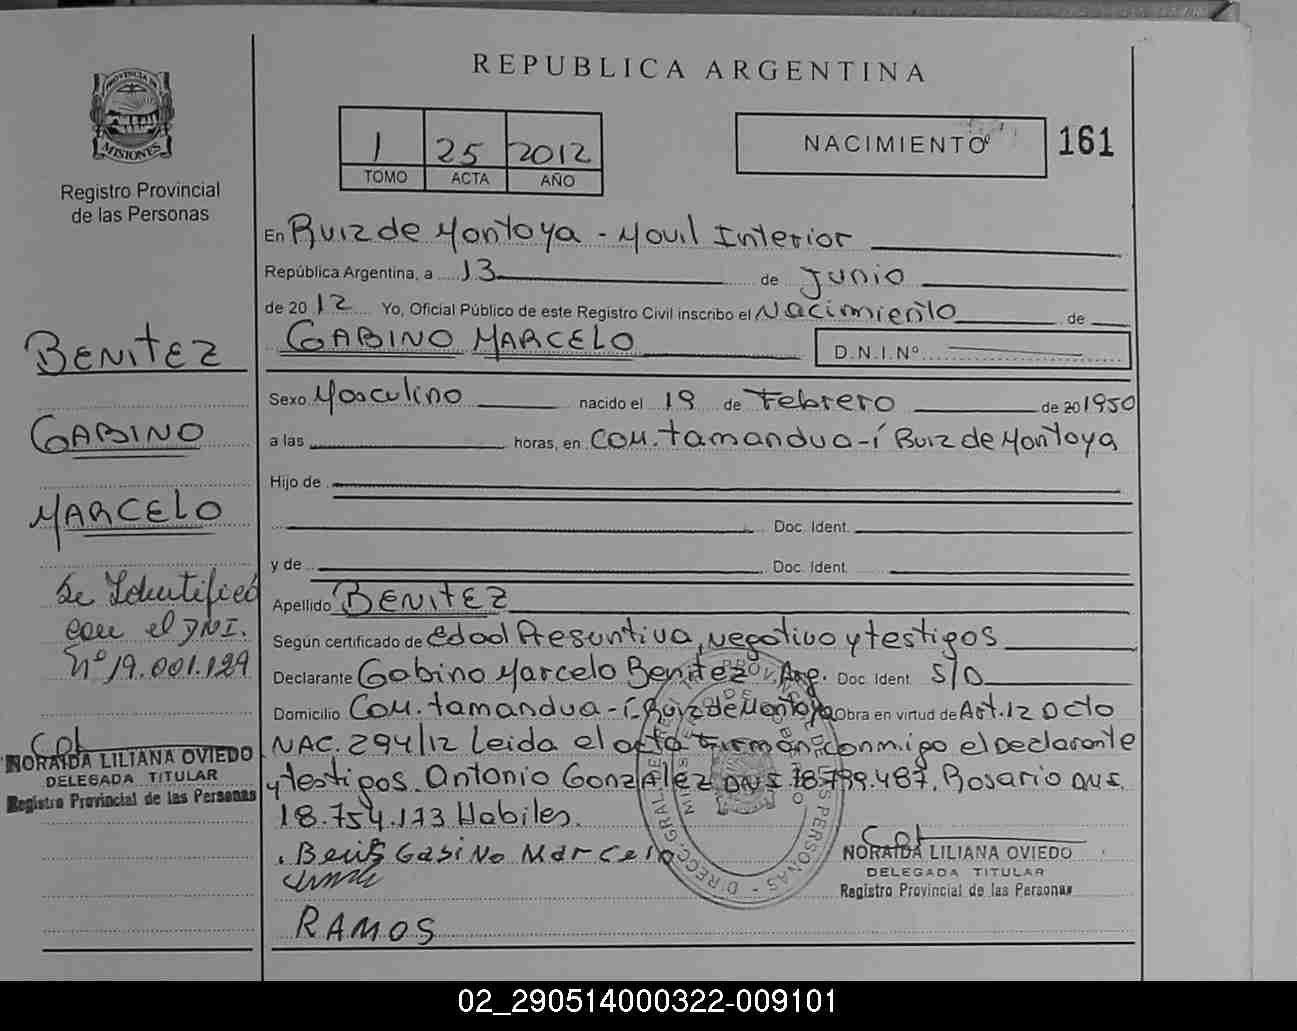 REPUBLICA ARGENTINA
PROVINCIA DE
MISIONES
Registro Provincial
de las Personas
1 25 2012
TOMO ACTA AÑO
NACIMIENTO 161
En Ruiz de Montoya - Movil Interior
República Argentina, a 13 de Junio
de 20 12 Yo, Oficial Público de este Registro Civil inscribo el Nacimiento de
GABINO MARCELO D.N.I.Nº
Sexo Masculino nacido el 19 de Febrero de 20 1950
a las horas, en Com. tamandua-í Ruiz de Montoya
Hijo de
Doc. Ident.
y de Doc. Ident.
Apellido BENITEZ
Según certificado de edad Presuntiva, negativo y testigos
Declarante Gabino Marcelo Benitez Arg. Doc. Ident. S/D
Domicilio Com. tamandua-í-Ruiz de Montoya Obra en virtud de Art. 12 Dcto
NAC. 294/12 Leida el acta Firman conmigo el Declarante
y testigos. Antonio GonzAlez DNI 18.799.487. Rosario
18.754.173 Habiles.
Gabino Marcelo
RAMOS
NORAIDA LILIANA OVIEDO
DELEGADA TITULAR
Registro Provincial de las Personas
BENITEZ
GABINO
MARCELO
Se Identificó
con el DNI.
Nº 19.001.129
NORAIDA LILIANA OVIEDO
DELEGADA TITULAR
Registro Provincial de las Personas
02_290514000322-009101